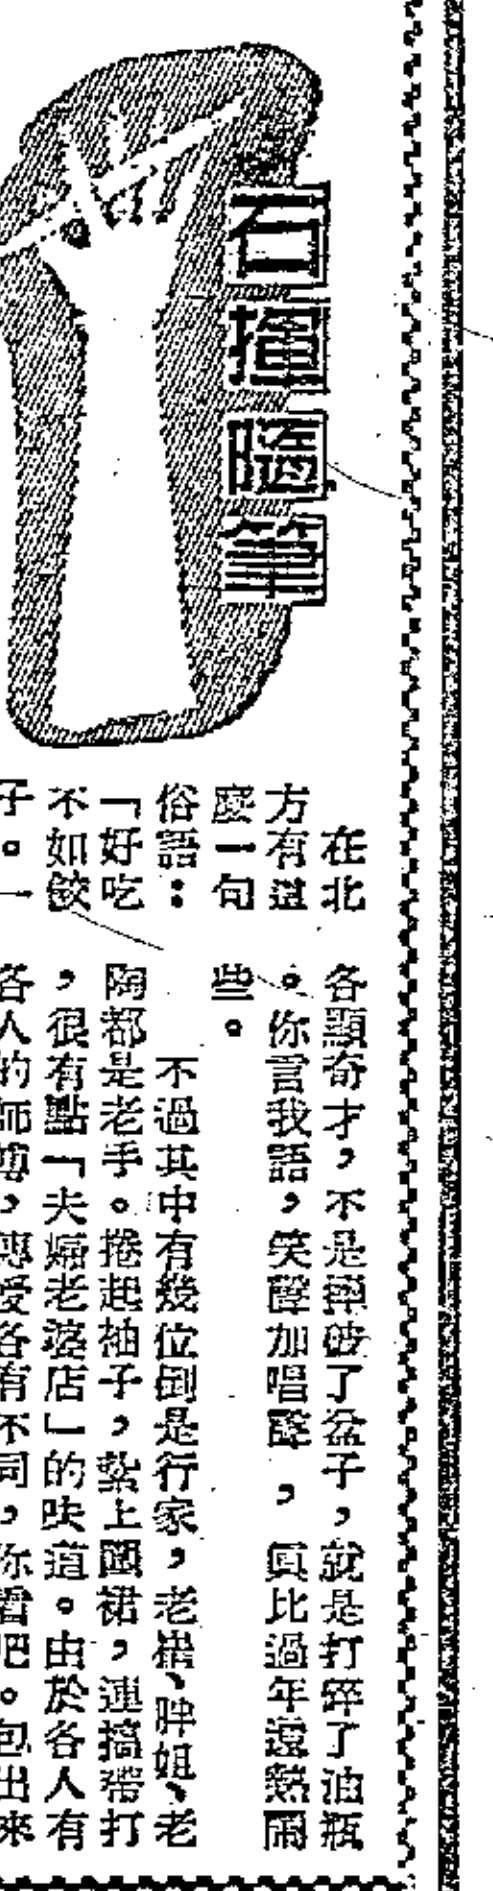 石揸隨筆
在北
方有這
麼一句
俗語：
「好吃
不如餃
子。
各顯奇才，不是摔破了盆子，就是打碎了油瓶
。你言我語，笑聲加唱聲，真比過年還熱鬧
些。
不過其中有幾位倒是行家，老崔、胖姐、老
陶都是老手。捲起袖子，紮上圍裙，連搞帶打
，很有點「夫婦老婆店」的味道。由於各人有
各人的師傅，傳受各有不同，你看吧。包出來